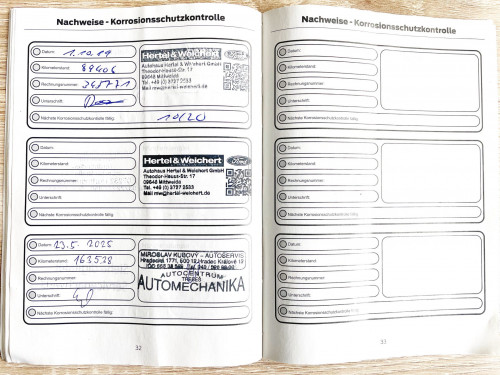 Nachweise - Korrosionsschutzkontrolle
Datum: 1.10.19
Kilometerstand:
Rechnungsnummer:
Unterschrift:
Nächste Korrosionsschutzkontrolle fällig: 10/20
Hertel & Weichert
Autohaus Hertel & Weichert GmbH
Theodor-Heuss-Str. 17
09648 Mittweida
Tel. +49 (0) 3727 2533
Mail mw@hertel-weichert.de
Datum:
Kilometerstand:
Rechnungsnummer:
Unterschrift:
Nächste Korrosionsschutzkontrolle fällig:
Hertel & Weichert Ford
Autohaus Hertel & Weichert GmbH
Theodor-Heuss-Str. 17
09648 Mittweida
Tel. +49 (0) 3727 2533
Mail mw@hertel-weichert.de
Datum: 23.5. 2025
Kilometerstand: 163528
Rechnungsnummer:
Unterschrift:
Nächste Korrosionsschutzkontrolle fällig:
MIROSLAV KUBOVÝ - AUTOSERVIS
Hradecká 1771, 500 12 Hradec Králové 12
AUTOCENTRUM
AUTOMECHANIKA
32
Nachweise - Korrosionsschutzkontrolle
Datum:
Kilometerstand:
Rechnungsnummer:
Unterschrift:
Nächste Korrosionsschutzkontrolle fällig:
Datum:
Kilometerstand:
Rechnungsnummer:
Unterschrift:
Nächste Korrosionsschutzkontrolle fällig:
Datum:
Kilometerstand:
Rechnungsnummer:
Unterschrift:
Nächste Korrosionsschutzkontrolle fällig:
33